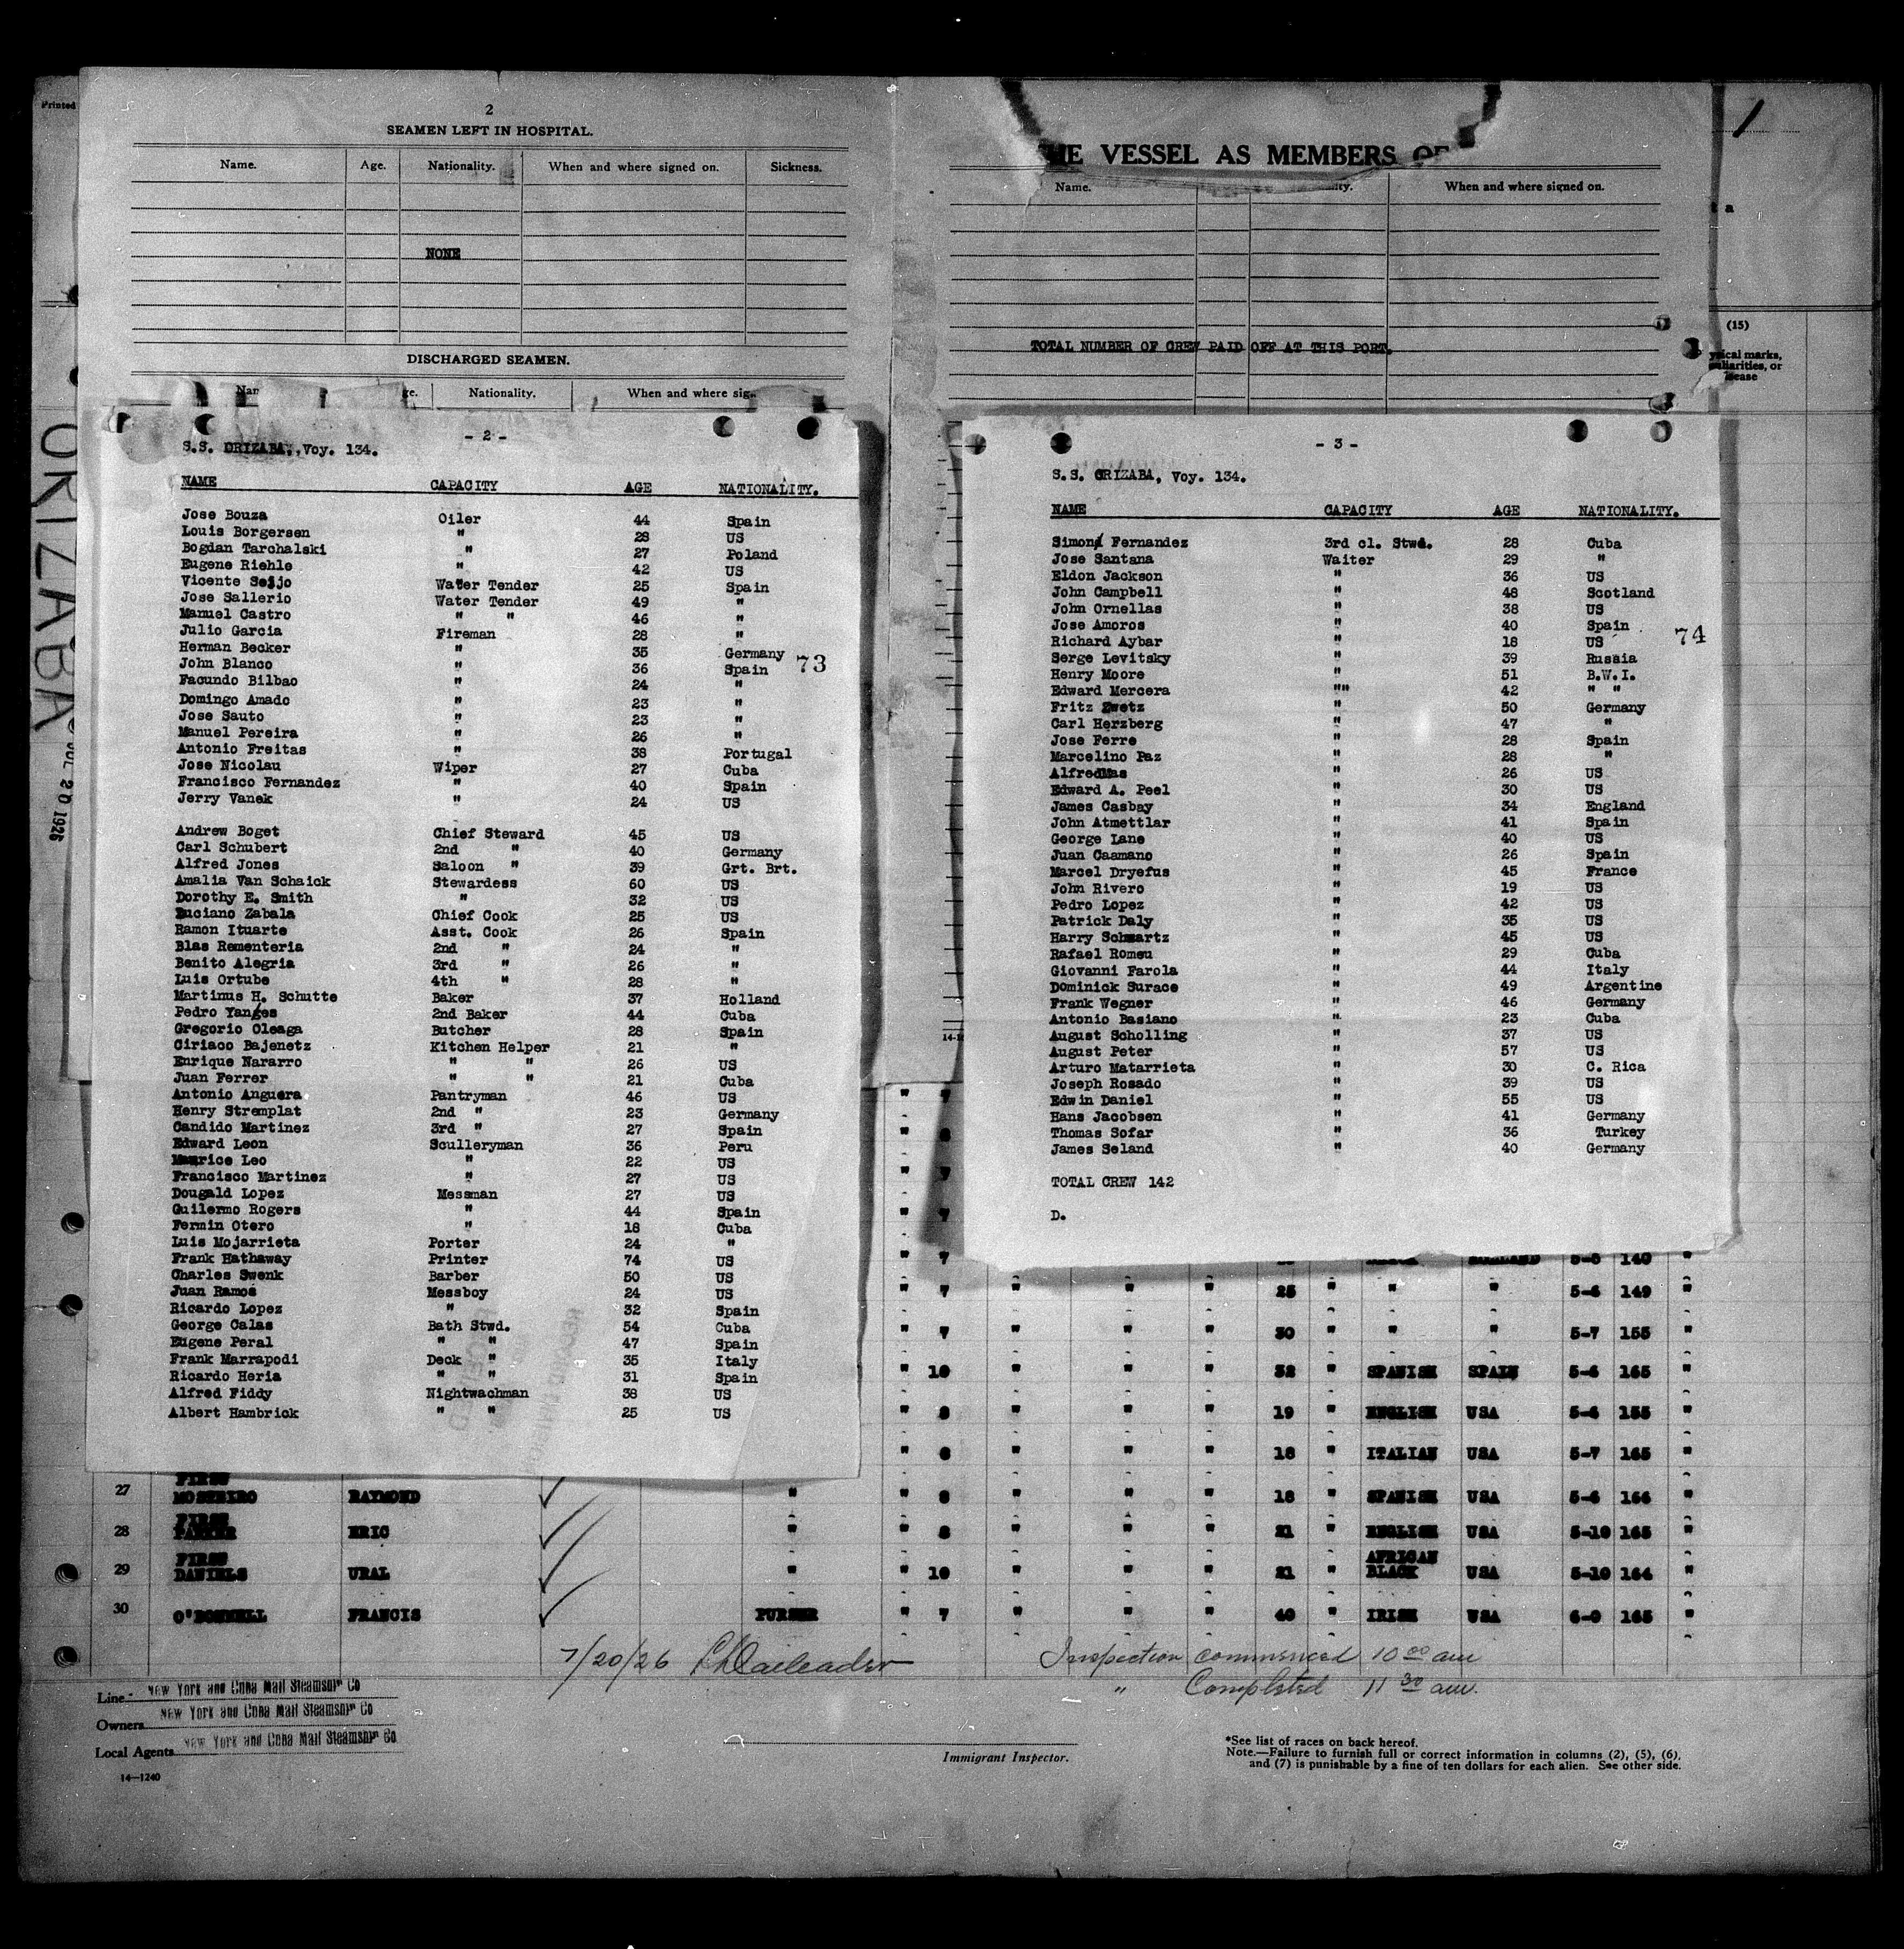 Printed
2
SEAMEN LEFT IN HOSPITAL.
Name. Age. Nationality. When and where signed on. Sickness.
NONE
DISCHARGED SEAMEN.
Nationality. When and where
VESSEL AS MEMBERS OF
Name. When and where signed on.
TOTAL NUMBER OF CREW PAID OFF AT THIS PORT.
(15)
ORIZABA
JUL 20 1926
- 2 -
S.S. ORIZABA, Voy. 134.
NAME CAPACITY AGE NATIONALITY.
Jose Bouza Oiler 44 Spain
Louis Borgersen " 28 US
Bogdan Tarchalski " 27 Poland
Eugene Riehle " 42 US
Vicente Seijo Water Tender 25 Spain
Jose Sallerio Water Tender 49 "
Manuel Castro " " 46 "
Julio Garcia Fireman 28 "
Herman Becker " 35 Germany
John Blanco " 36 Spain
73
Facundo Bilbao " 24 "
Domingo Amado " 23 "
Jose Sauto " 23 "
Manuel Pereira " 26 "
Antonio Freitas " 38 Portugal
Jose Nicolau Wiper 27 Cuba
Francisco Fernandez " 40 Spain
Jerry Vanek " 24 US
Andrew Boget Chief Steward 45 US
Carl Schubert 2nd " 40 Germany
Alfred Jones Saloon " 39 Grt. Brt.
Amalia Van Schaick Stewardess 60 US
Dorothy E. Smith " 32 US
Luciano Zabala Chief Cook 25 US
Ramon Ituarte Asst. Cook 26 Spain
Blas Rementeria 2nd " 24 "
Benito Alegria 3rd " 26 "
Luis Ortube 4th " 28 "
Martinus H. Schutte Baker 37 Holland
Pedro Yanges 2nd Baker 44 Cuba
Gregorio Oleaga Butcher 28 Spain
Ciriaco Bajenetz Kitchen Helper 21 "
Enrique Nararro " " 26 US
Juan Ferrer " " 21 Cuba
Antonio Anguera Pantryman 46 US
Henry Stremplat 2nd " 23 Germany
Candido Martinez 3rd " 27 Spain
Edward Leon Sculleryman 36 Peru
Maurice Leo " 22 US
Francisco Martinez " 27 US
Dougald Lopez Messman 27 US
Guilermo Rogers " 44 Spain
Fermin Otero " 18 Cuba
Luis Mojarrieta Porter 24 "
Frank Hathaway Printer 74 US
Charles Swenk Barber 50 US
Juan Ramos Messboy 24 US
Ricardo Lopez " 32 Spain
George Calas Bath Stwd. 54 Cuba
Eugene Peral " " 47 Spain
Frank Marrapodi Deck " 35 Italy
Ricardo Heria " " 31 Spain
Alfred Fiddy Nightwachman 38 US
Albert Hambrick " " 25 US
- 3 -
S.S. ORIZABA, Voy. 134.
NAME CAPACITY AGE NATIONALITY.
Simon Fernandez 3rd cl. Stwd. 28 Cuba
Jose Santana Waiter 29 "
Eldon Jackson " 36 US
John Campbell " 48 Scotland
John Ornellas " 38 US
Jose Amoros " 40 Spain
Richard Aybar " 18 US
74
Serge Levitsky " 39 Russia
Henry Moore " 51 B.W.I.
Edward Mercera "" 42 " "
Fritz Zwetz " 50 Germany
Carl Herzberg " 47 "
Jose Ferre " 28 Spain
Marcelino Paz " 28 "
Alfred Mas " 26 US
Edward A. Peel " 30 US
James Casbay " 34 England
John Atmettlar " 41 Spain
George Lane " 40 US
Juan Caamano " 26 Spain
Marcel Dryefus " 45 France
John Rivero " 19 US
Pedro Lopez " 42 US
Patrick Daly " 35 US
Harry Schwartz " 45 US
Rafael Romeu " 29 Cuba
Giovanni Farola " 44 Italy
Dominick Surace " 49 Argentine
Frank Wegner " 46 Germany
Antonio Basiano " 23 Cuba
August Scholling " 37 US
August Peter " 57 US
Arturo Matarrieta " 30 C. Rica
Joseph Rosado " 39 US
Edwin Daniel " 55 US
Hans Jacobsen " 41 Germany
Thomas Sofar " 36 Turkey
James Seland " 40 Germany
TOTAL CREW 142
D.
" 7 5-8 140
" 7 " " " 25 " " " 5-6 149 "
" 7 " " " 30 " " " 5-7 155 "
" 10 " " " 32 " SPANISH SPAIN 5-6 165 "
" 8 " " " 19 " ENGLISH USA 5-6 155 "
" 6 " " " 18 " ITALIAN USA 5-7 165 "
27 MOSTEIRO RAYMOND " " 8 " " " 18 " SPANISH USA 5-6 166 "
28 ERIC " " 8 " " " 21 " ENGLISH USA 5-10 165 "
29 DANIELS URAL " " 10 " " " 21 " AFRICAN BLACK USA 5-10 164 "
30 O'DONNELL FRANCIS PURSER " 7 " " " 40 " IRISH USA 6-0 165 "
7/20/26
Inspection commenced 10 00 am
" Completed 11 30 am.
Line New York and Cuba Mail Steamship Co
Owners New York and Cuba Mail Steamship Co
Local Agents New York and Cuba Mail Steamship Co
14—1240
Immigrant Inspector.
*See list of races on back hereof.
Note.—Failure to furnish full or correct information in columns (2), (5), (6),
and (7) is punishable by a fine of ten dollars for each alien. See other side.